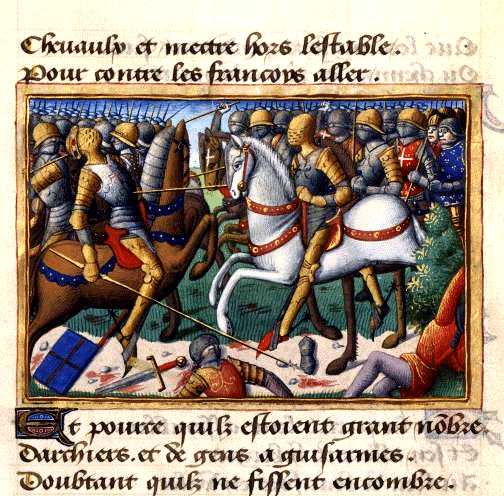 Cheuaulx et mectre hors lestable.
Pour contre les francoys aller.
Et pource quilz estoient grant nõbre
Darchiers. et de gens a guisarmes.
Doubtant quilz ne fissent encombre.